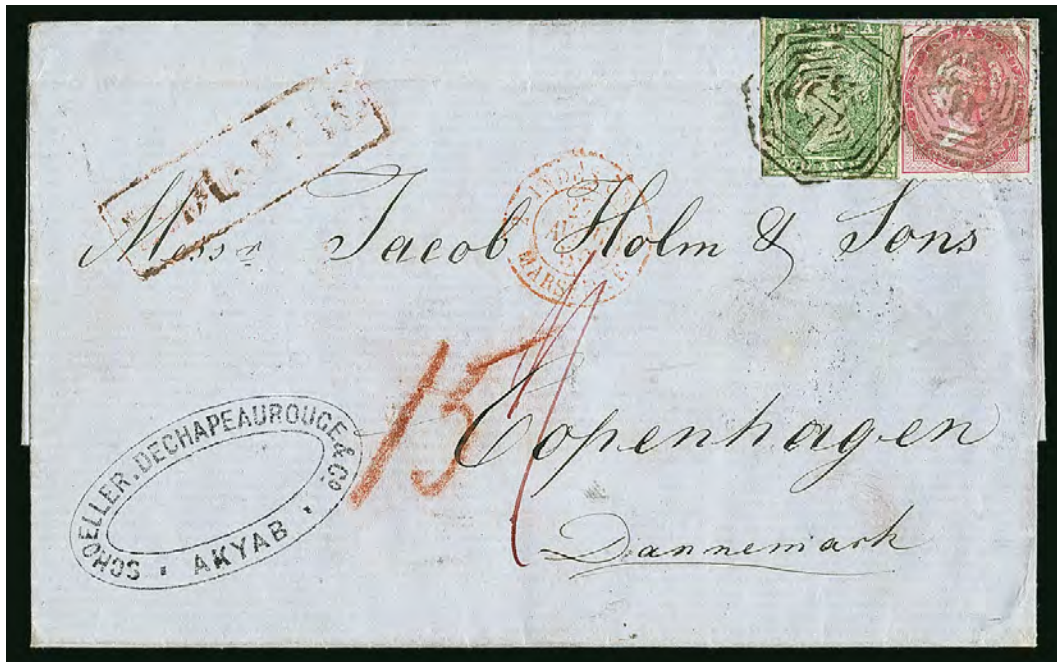 INDIA
Messrs Jacob Holm & Sons
MARSEILLE
15
Copenhagen
Dannemark
SCHOELLER, DECHAPEAUROUGE & Co.
AKYAB